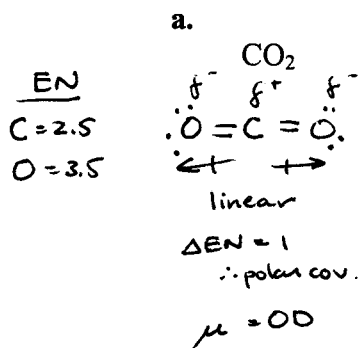 a.
CO₂
EN
C = 2.5
O = 3.5
δ⁻ δ⁺ δ⁻
:Ö = C = Ö:
linear
ΔEN = 1
∴ polar cov.
μ = 0D